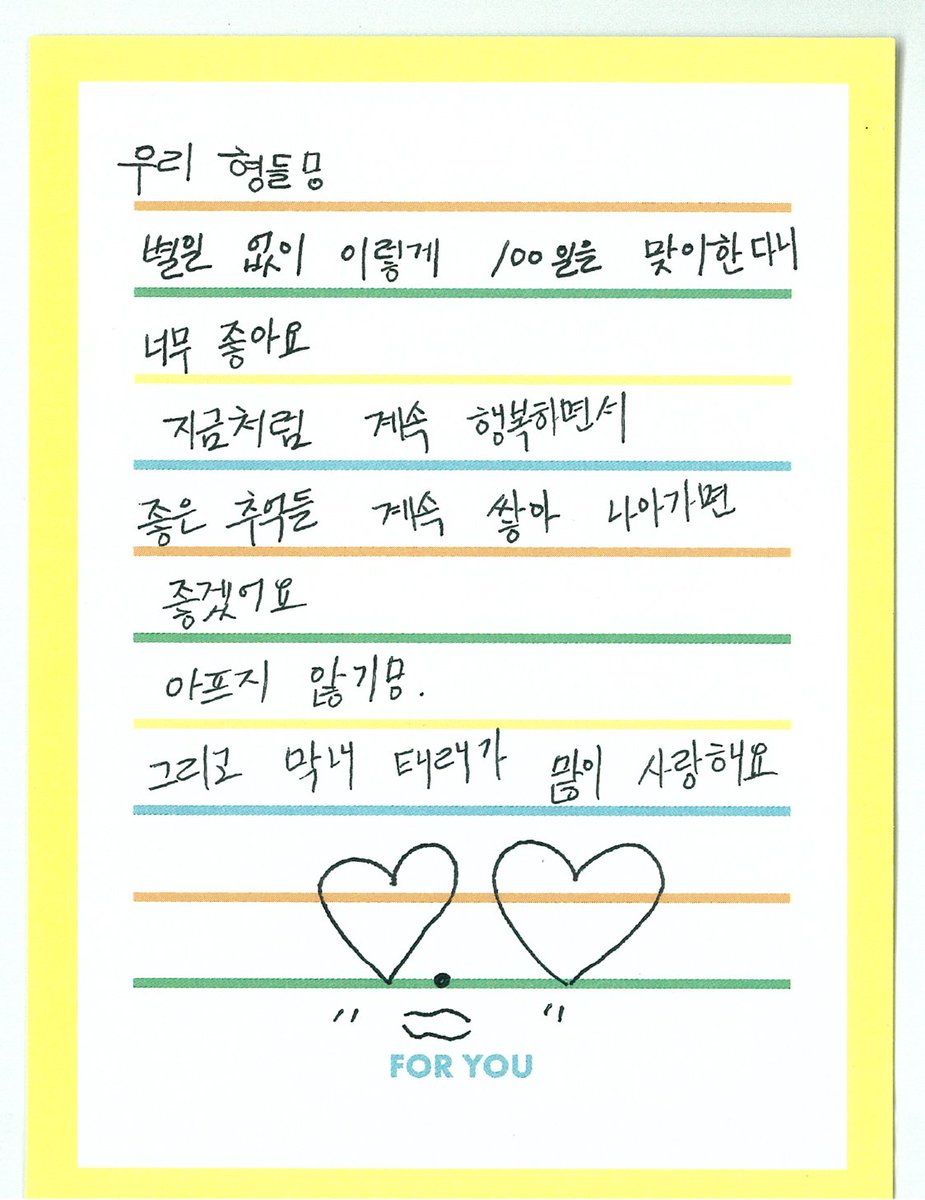 우리 형들몽
별일 없이 이렇게 100일을 맞이한다니
너무 좋아요
지금처럼 계속 행복하면서
좋은 추억들 계속 쌓아 나아가면
좋겠어요
아프지 않기몽.
그리고 막내 태래가 많이 사랑해요
FOR YOU